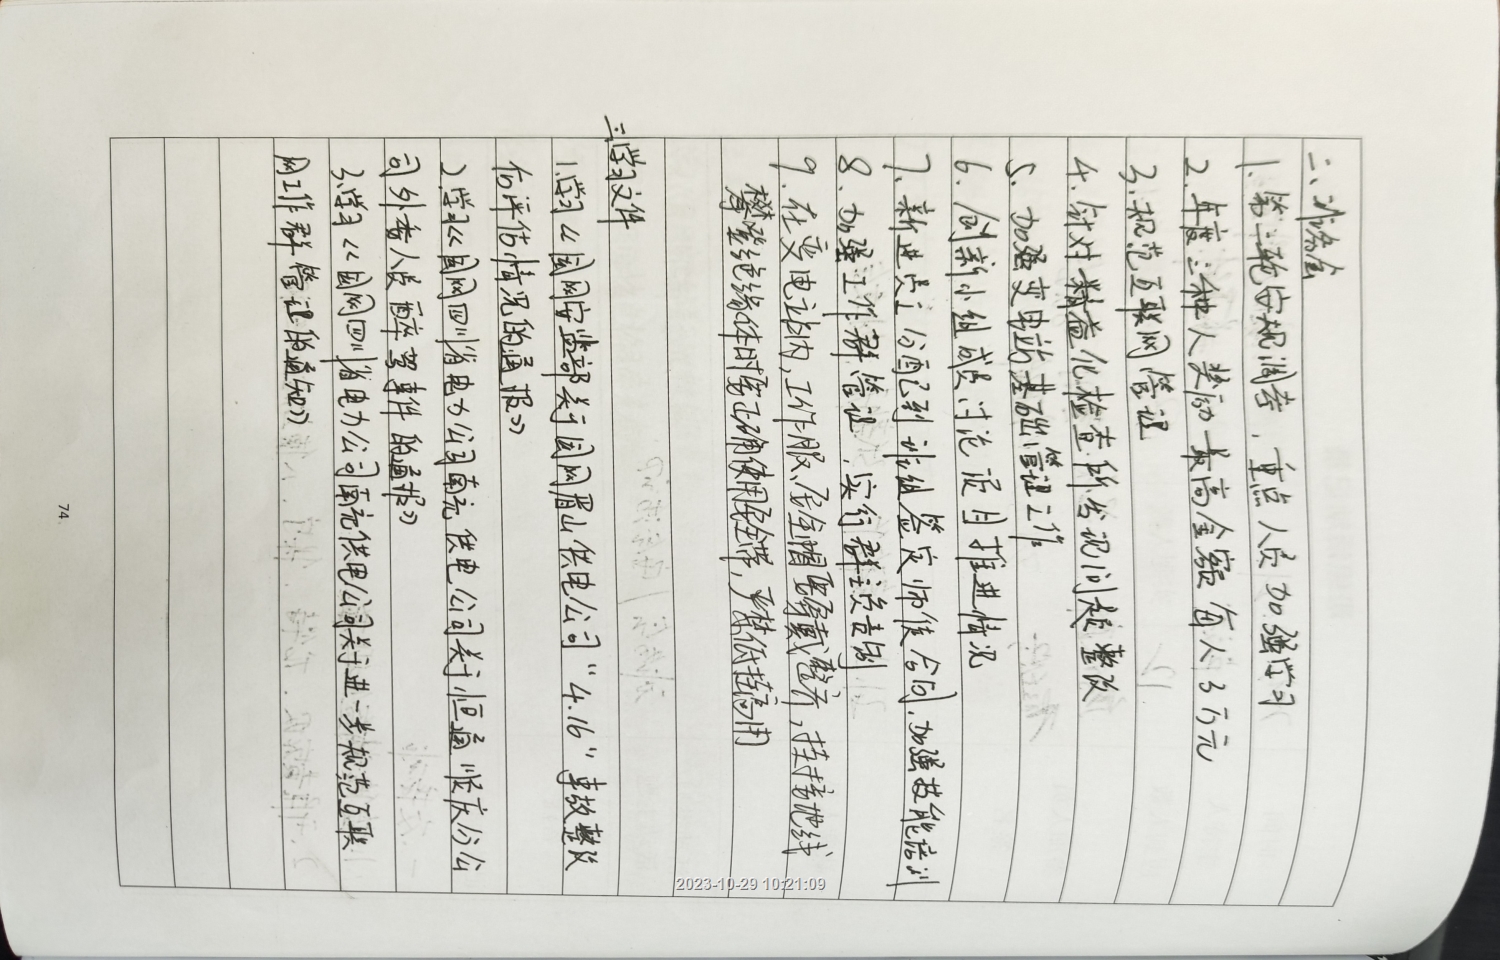 二、班务会
1. 第二轮安规调考，重点人员加强学习
2. 年度三种人奖励最高金额每人3万元
3. 规范互联网管理
4. 针对精益化检查所发现问题整改
5. 加强变电站基础管理工作
6. 创新小组成员讨论项目推进情况
7. 新进员工分配到班组签定师徒合同，加强技能培训
8. 加强工作群管理，实行群主负责制
9. 在变电站内，工作服、安全帽要穿戴整齐，挂接地线
攀登绝缘体时要正确使用安全带，严禁低挂高用
三、学习文件
1. 学习《国网安监部关于国网眉山供电公司“4.16”事故整改
估评估情况的通报》
2. 学习《国网四川省电力公司南充供电公司关于恒通顺庆分公
司外委人员醉驾事件的通报》
3. 学习《国网四川省电力公司南充供电公司关于进一步规范互联
网工作群管理的通知》
74
2023-10-29 10:21:09